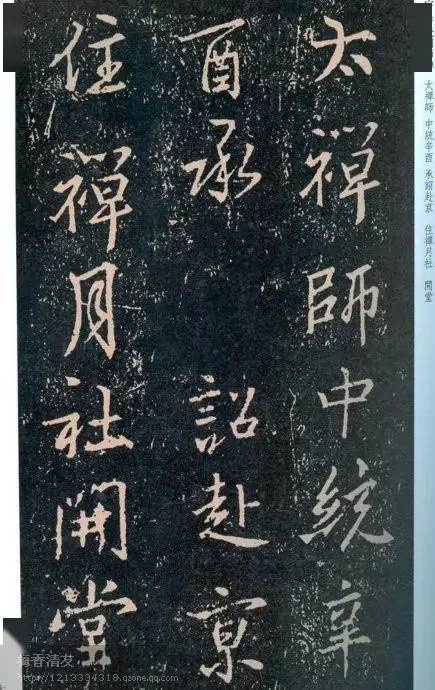 太禪師中統辛
酉承 詔赴京
住禪月社開堂
太禪師 中統辛酉 承詔赴京 住禪月社 開堂
梅香清友
http://1213334318.qzone.qq.com